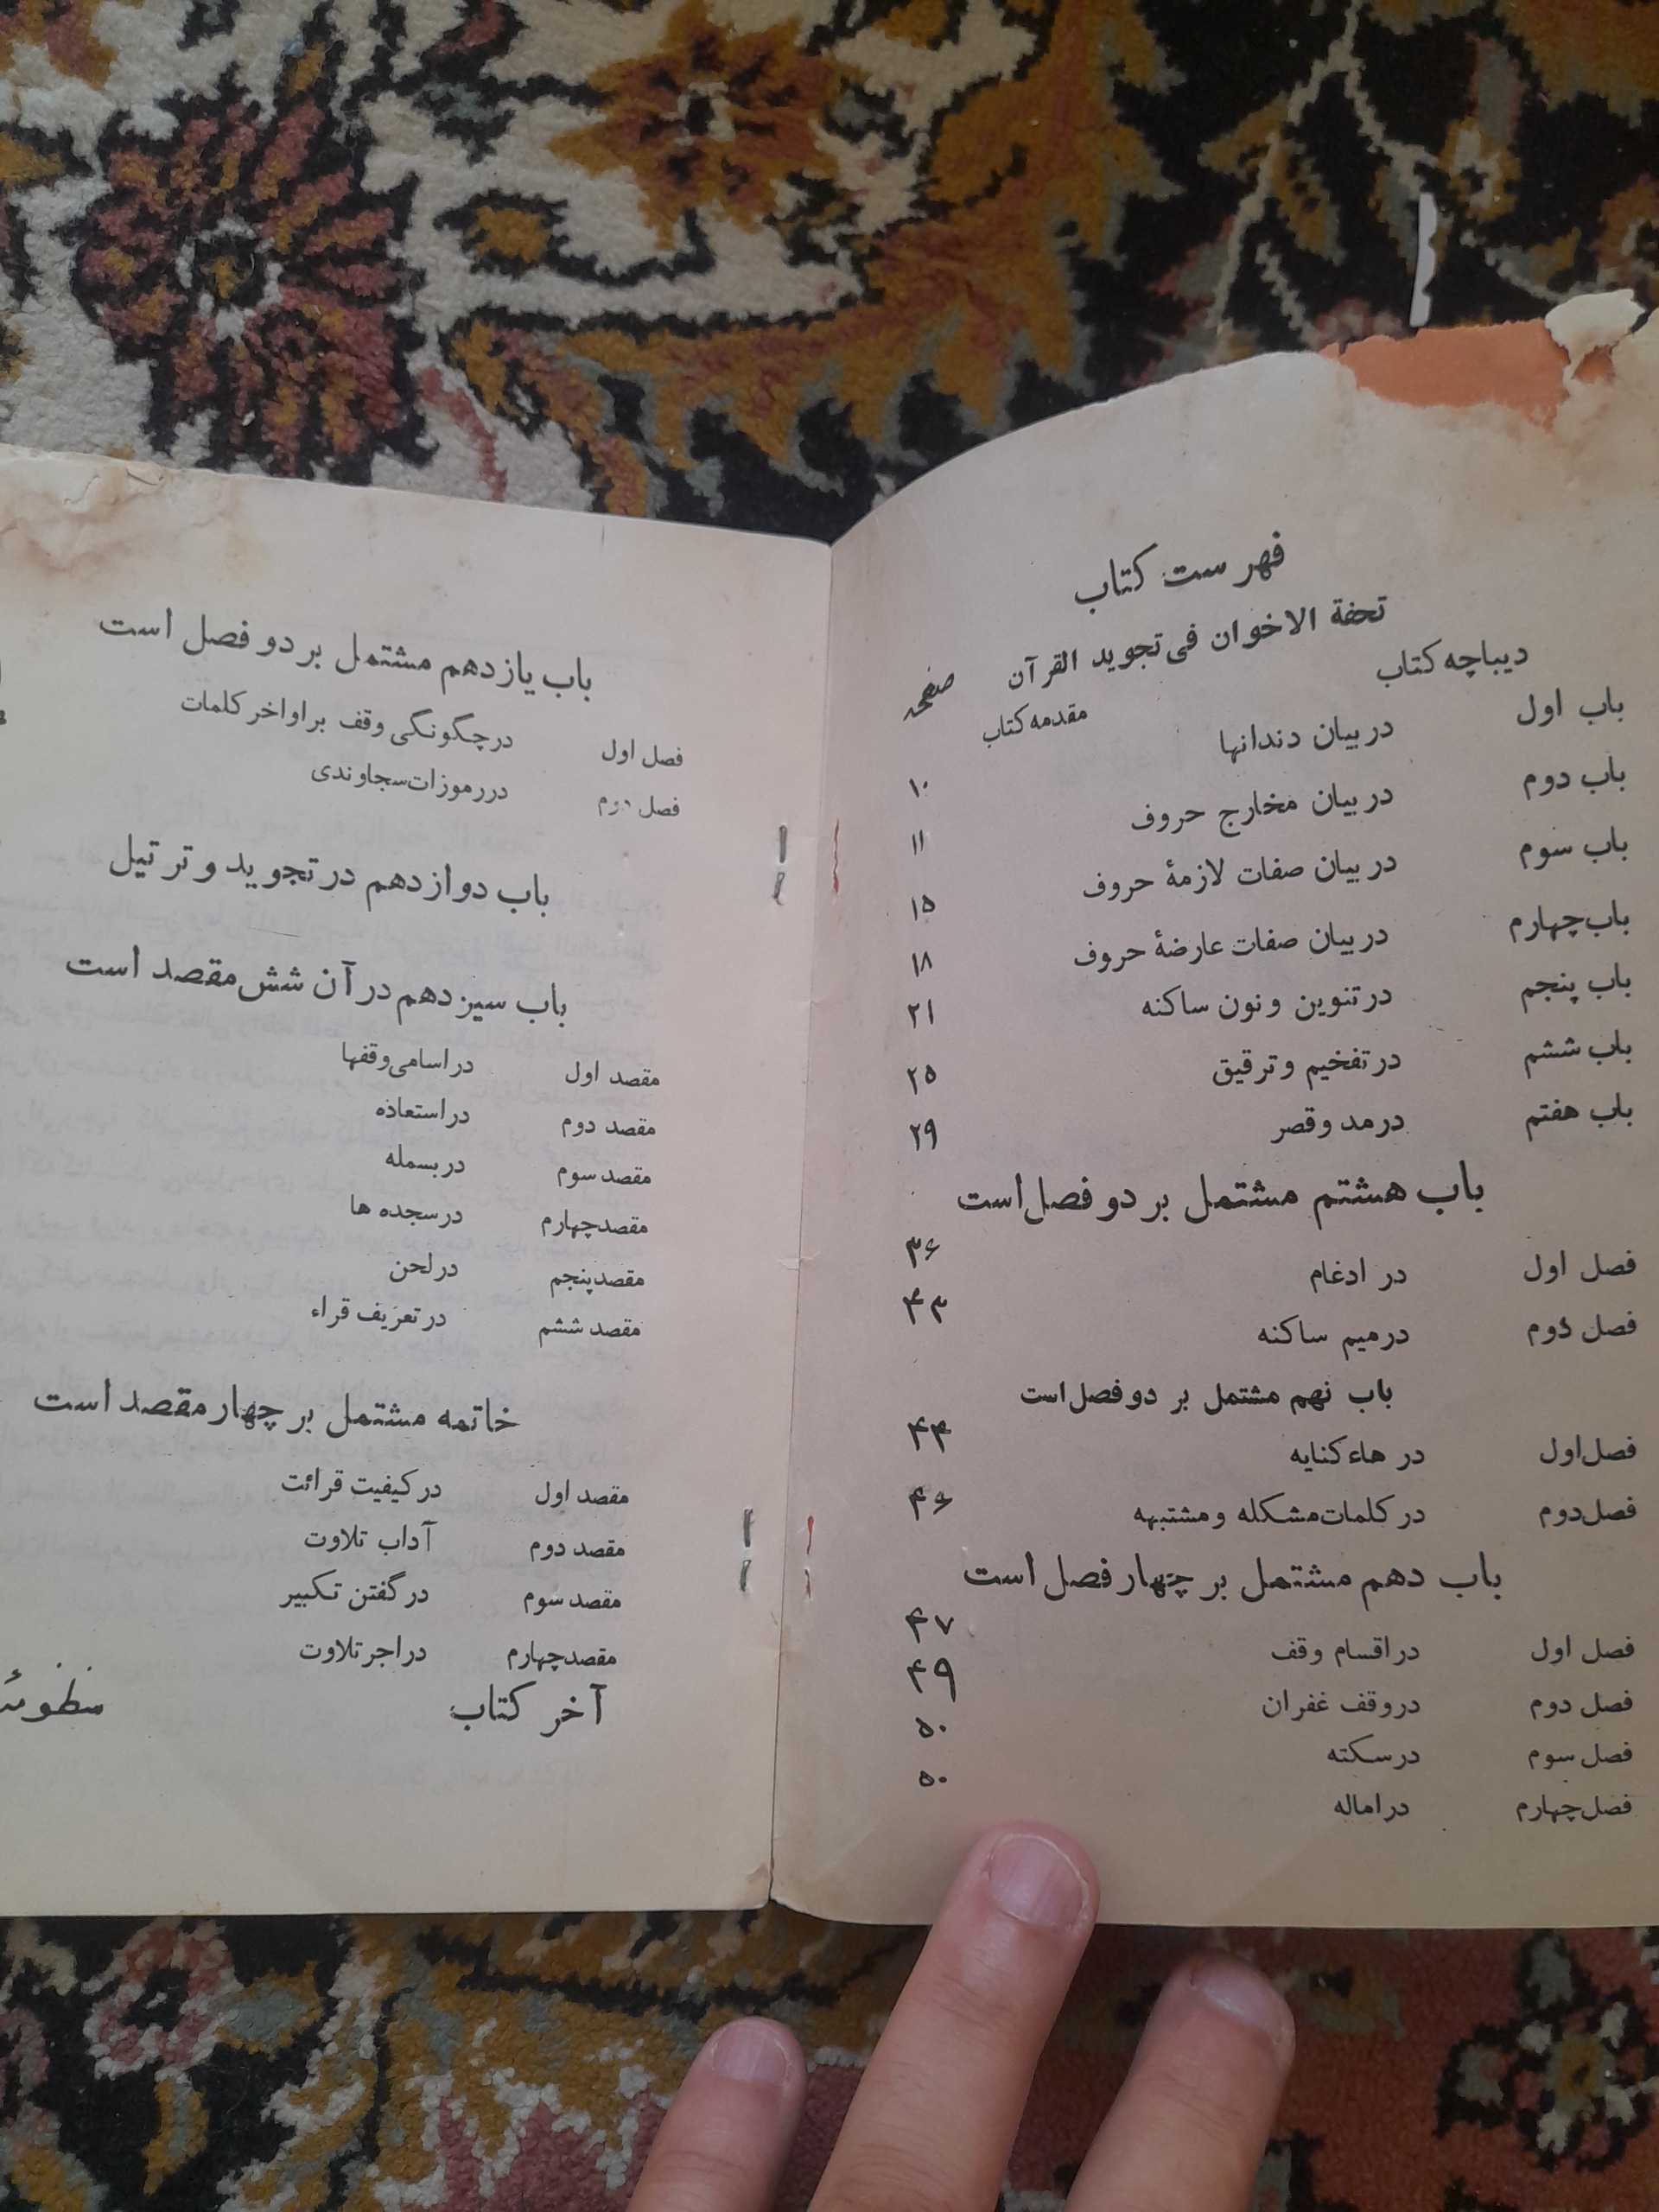 فهرست کتاب
تحفة الاخوان فی تجوید القرآن
دیباچه کتاب مقدمه کتاب صفحه
باب اول در بیان دندانها ۱۰
باب دوم در بیان مخارج حروف ۱۱
باب سوم در بیان صفات لازمهٔ حروف ۱۵
باب چهارم در بیان صفات عارضهٔ حروف ۱۸
باب پنجم در تنوین و نون ساکنه ۲۱
باب ششم در تفخیم و ترقیق ۲۵
باب هفتم در مد و قصر ۲۹
باب هشتم مشتمل بر دو فصل است
فصل اول در ادغام ۳۶
فصل دوم در میم ساکنه ۴۳
باب نهم مشتمل بر دو فصل است
فصل اول در هاء کنایه ۴۴
فصل دوم در کلمات مشکله و مشتبهه ۴۶
باب دهم مشتمل بر چهار فصل است
فصل اول در اقسام وقف ۴۷
فصل دوم در وقف غفران ۴۹
فصل سوم در سکته ۵۰
فصل چهارم در اماله ۵۰
باب یازدهم مشتمل بر دو فصل است
فصل اول در چگونگی وقف بر اواخر کلمات
فصل دوم در رموزات سجاوندی
باب دوازدهم در تجوید و ترتیل
باب سیزدهم در آن شش مقصد است
مقصد اول در اسامی وقفها
مقصد دوم در استعاذه
مقصد سوم در بسمله
مقصد چهارم در سجده ها
مقصد پنجم در لحن
مقصد ششم در تعریف قراء
خاتمه مشتمل بر چهار مقصد است
مقصد اول در کیفیت قرائت
مقصد دوم آداب تلاوت
مقصد سوم در گفتن تکبیر
مقصد چهارم در اجر تلاوت
آخر کتاب